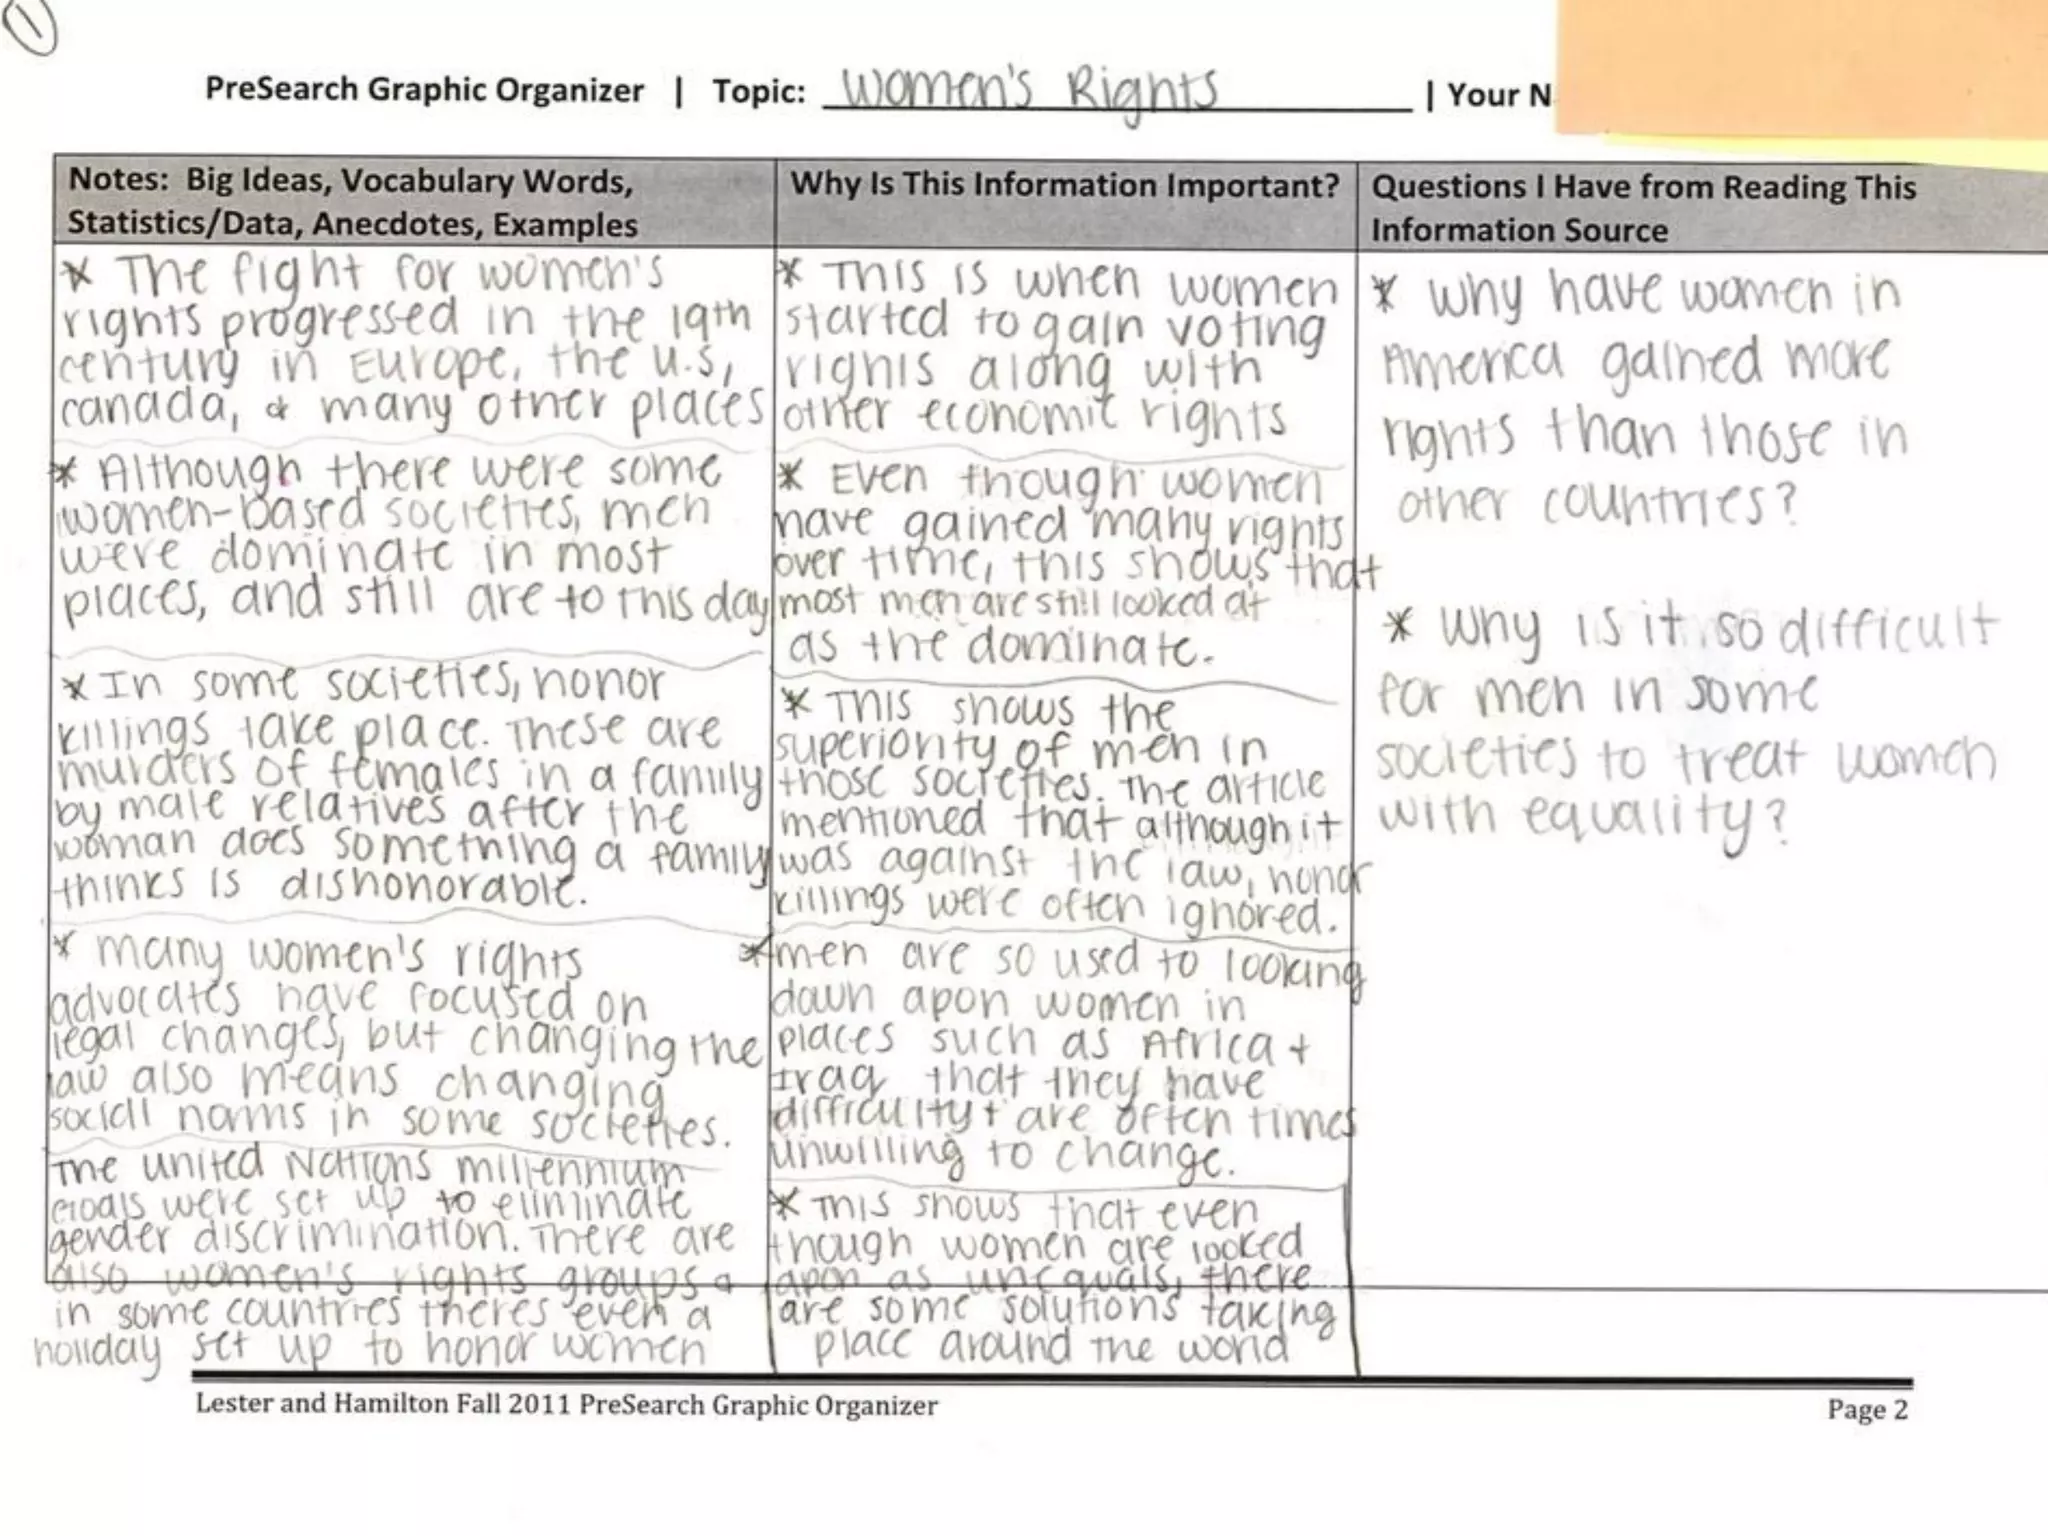 1
PreSearch Graphic Organizer | Topic: Women's Rights | Your N
Notes: Big Ideas, Vocabulary Words,
Statistics/Data, Anecdotes, Examples
* The fight for women's
rights progressed in the 19th
century in Europe, the U.S,
Canada, & many other places
* Although there were some
women-based societies, men
were dominate in most
places, and still are to this day
* In some societies, honor
killings take place. These are
murders of females in a family
by male relatives after the
woman does something a family
thinks is dishonorable.
* many women's rights
advocates have focused on
legal changes, but changing the
law also means changing
social norms in some societies.
The United Nations millennium
Goals were set up to eliminate
gender discrimination. There are
also women's rights groups &
in some countries theres even a
holiday set up to honor women
Why Is This Information Important?
* This is when women
started to gain voting
rights along with
other economic rights
* Even though women
have gained many rights
over time, this shows that
most men are still looked at
as the dominate.
* This shows the
superiority of men in
those societies. The article
mentioned that although it
was against the law, honor
killings were often ignored.
* men are so used to looking
down apon women in
places such as Africa +
Iraq that they have
difficulty + are often times
unwilling to change.
* This shows that even
though women are looked
apon as unequals, there
are some solutions taking
place around the world
Questions I Have from Reading This
Information Source
* Why have women in
America gained more
rights than those in
other countries?
* Why is it so difficult
for men in some
societies to treat women
with equality?
Lester and Hamilton Fall 2011 PreSearch Graphic Organizer
Page 2